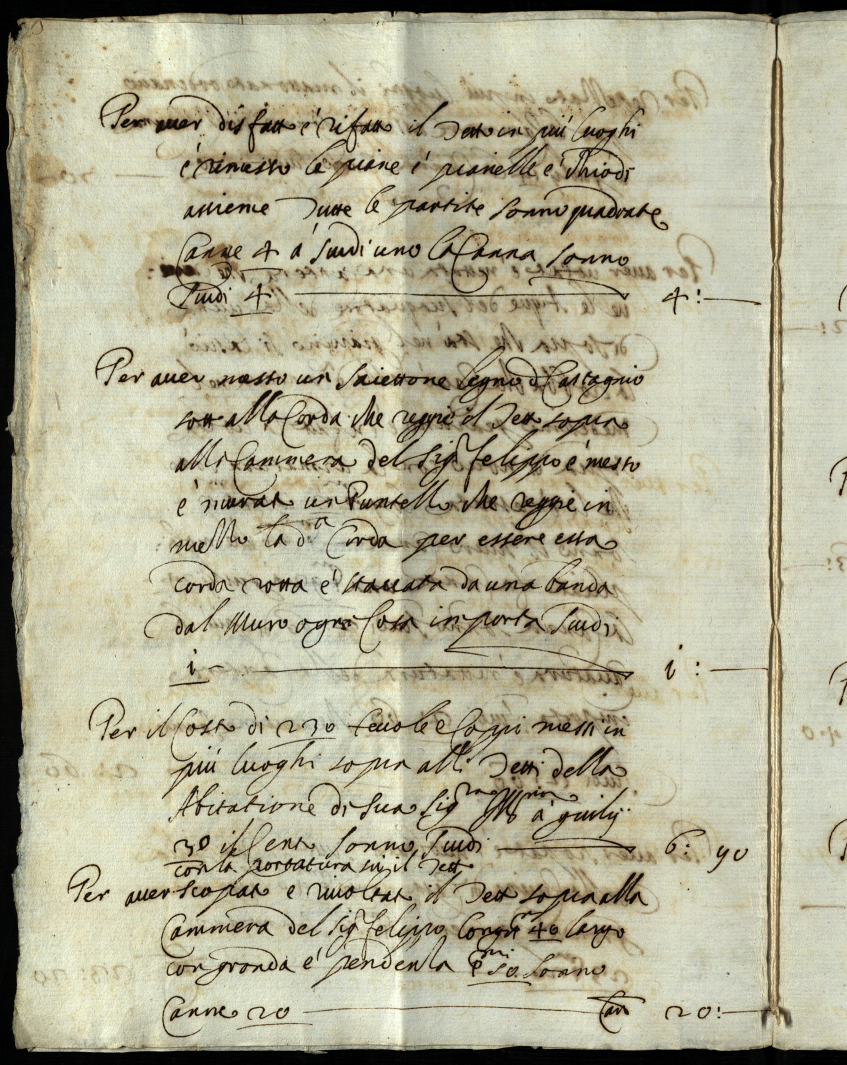 Per aver disfatto e rifatto il Tetto in più luoghi
e rimesso le piane e pianelle e Chiodi
assieme Tutte le partite sonno quadrate
Canne 4 à Scudi uno la Canna sonno
Scudi 4 4:
Per aver messo un Saiettone legno di Castagnio
sott alla Corda che reggie il Tett sopra
alla Cammera del Sig.r Felippo e messo
e murat un Puntello che reggie in
mezzo la d.a Corda per essere essa
corda rotta e staccata da una banda
dal Muro ogni Cosa importa Scudi
i i:
Per il Costo di 230 Tevole e Coppi messi in
più luoghi sopra alli Tetti della
Abitatione di Sua Sig.ria à giulij
30 il Cent sonno Scudi 6: 90
con la portatura su il Tett
Per aver scopato e rivoltat il Tett sopra alla
Cammera del Sig.r Felippo longo 40 largo
con gronda e pendenza 50 sonno
Canne 20 Can 20: